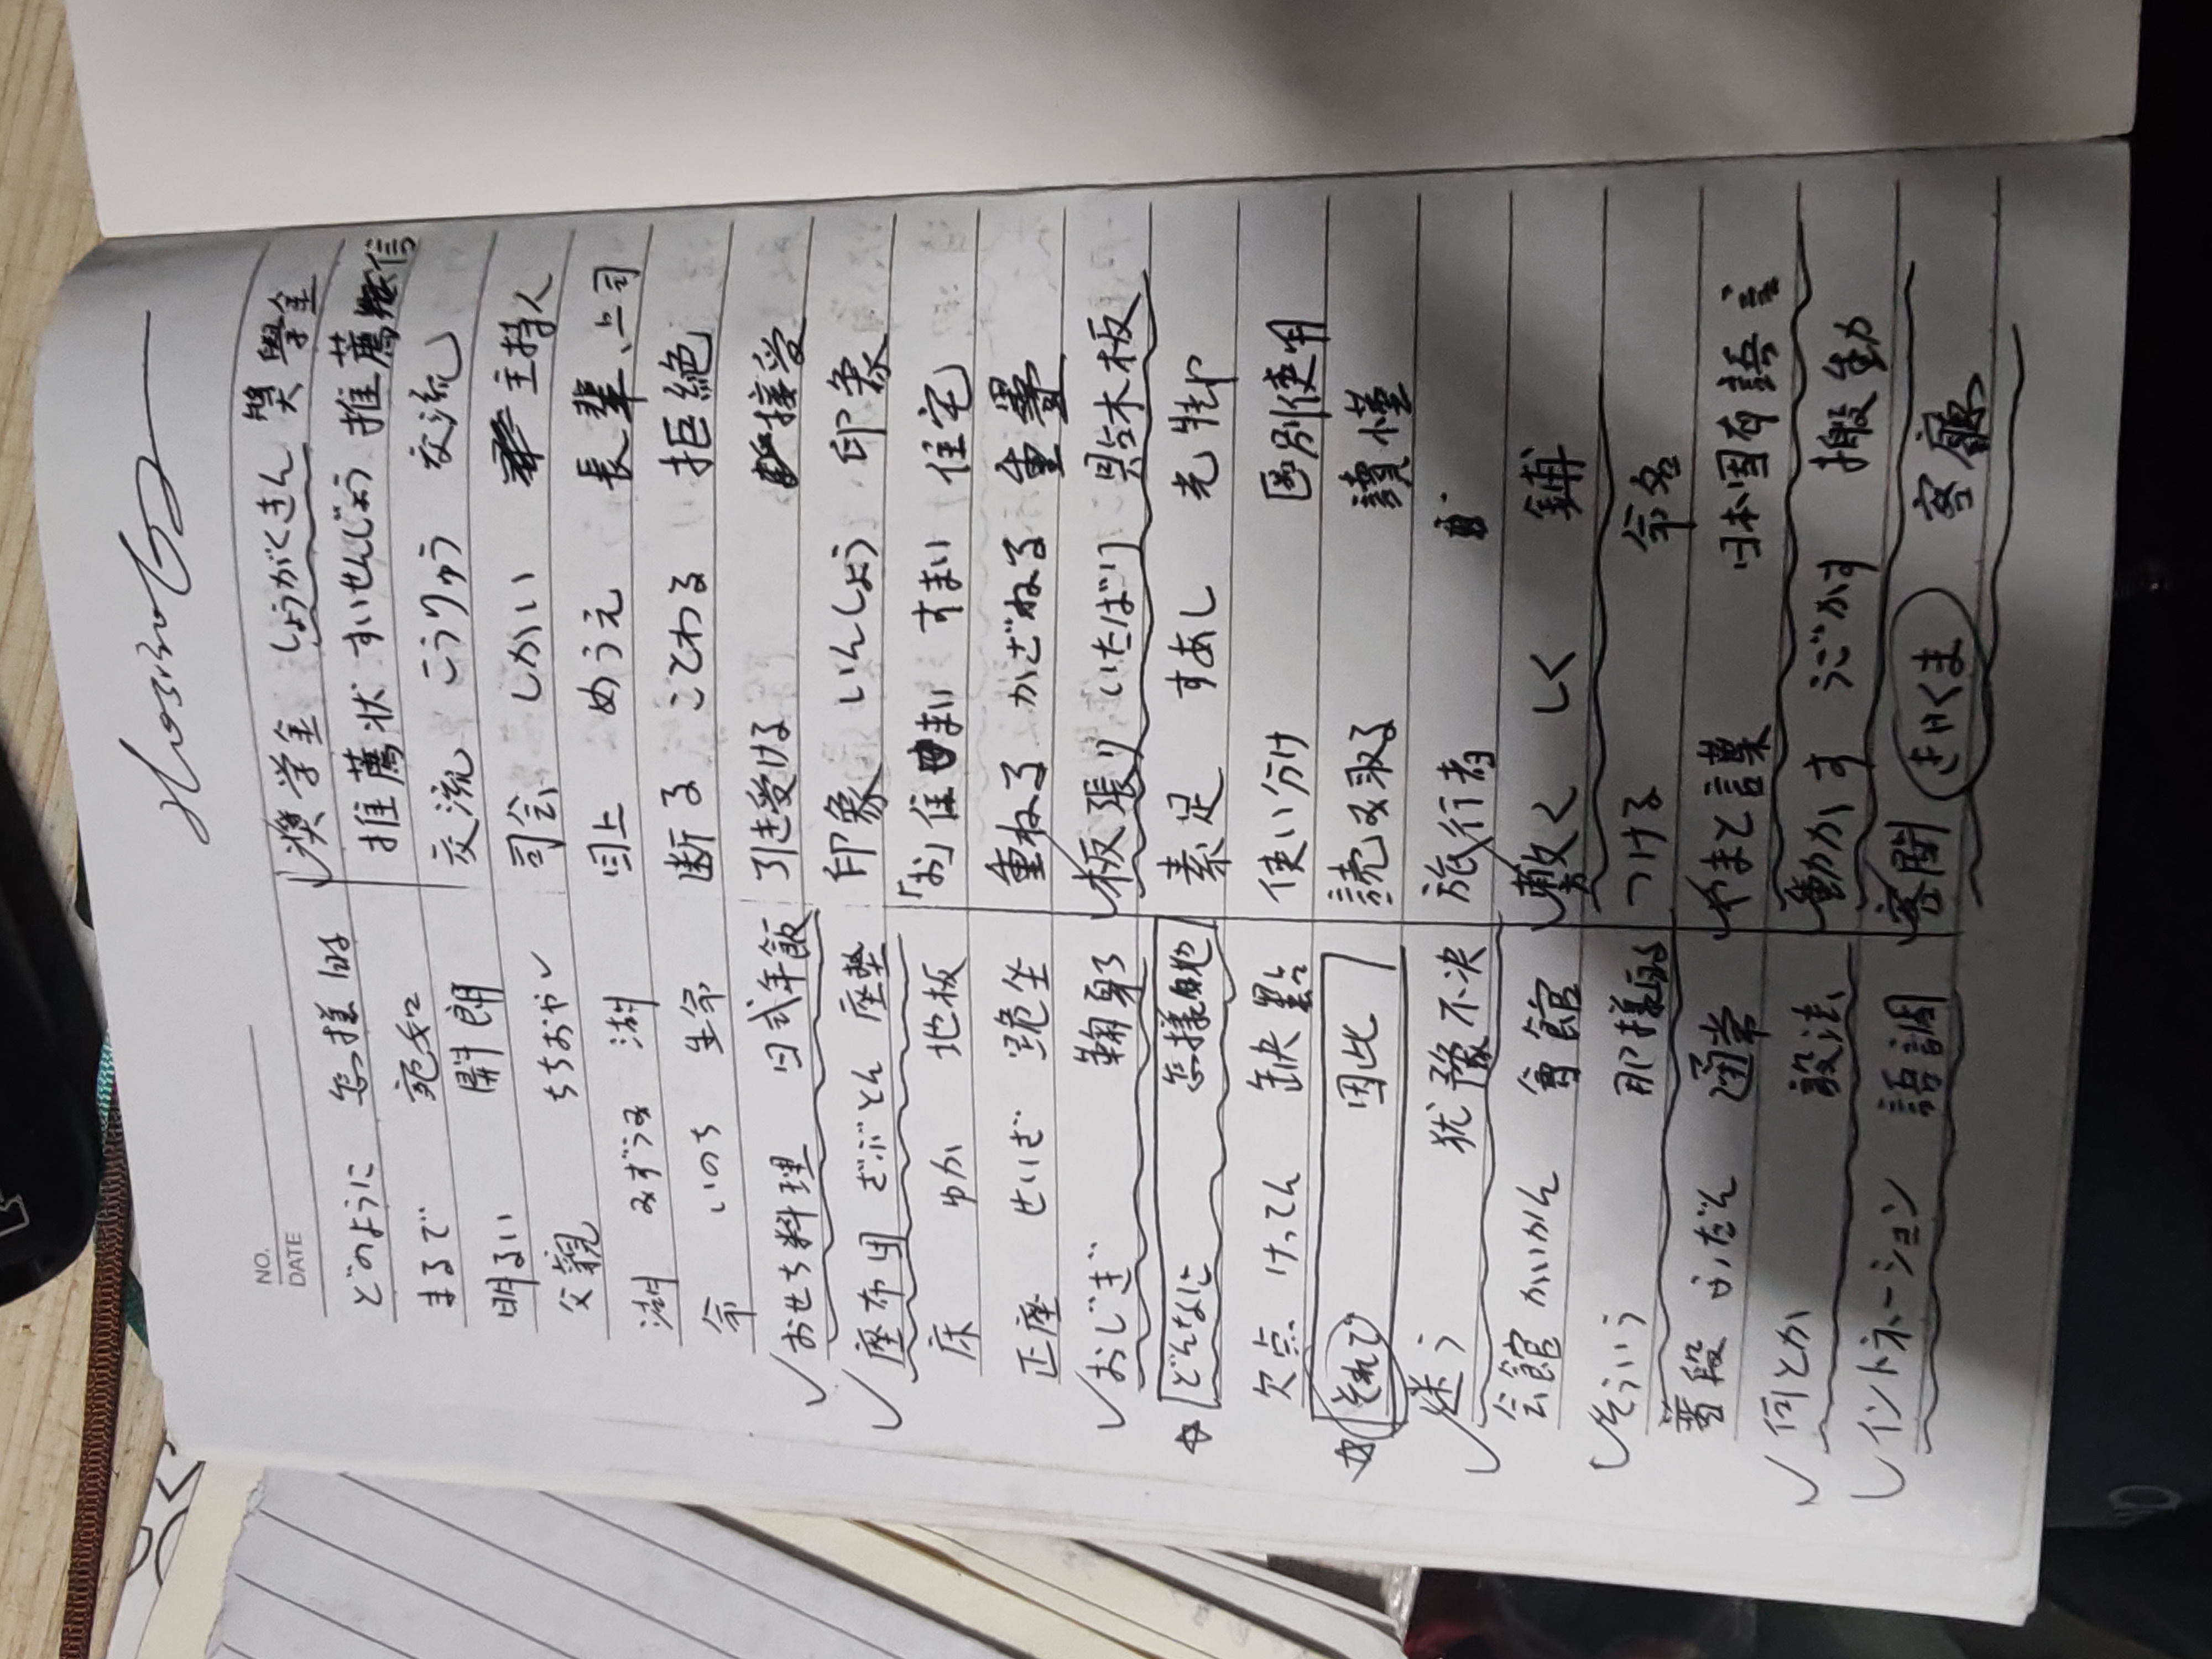 NO.
DATE
どのように 怎様
まるで 宛如
明るい 開朗
父親 ちちおや
湖 みずうみ 湖
命 いのち 生命
おせち料理 日式年飯
座布団 ざぶとん 座墊
床 ゆか 地板
正座 せいざ 跪坐
おじぎ 鞠躬
どんなに 怎樣地
欠点 けってん 缺點
それで 因此
迷う 犹豫不决
会館 かいかん 會館
そういう 那様的
普段 ふだん 通常
何とか 設法
イントネーション 語調
奨学金 しょうがくきん 獎學金
推薦状 すいせんじょう 推薦信
交流 こうりゅう 交流
司会 しかい 主持人
目上 めうえ 長輩、上司
断る ことわる 拒絶
引き受ける 接受
印象 いんしょう 印象
「お」住まい すまい 住宅
重ねる かざねる 重疊
板張り いたばり 與木板
素足 すあし 光脚
使い分け 區別使用
読み取る 讀懂
旅行者
敷く しく 鋪
つける 命名
やまと言葉 日本固有語言
動かす うごかす 搬動
客間 きゃくま 客廳